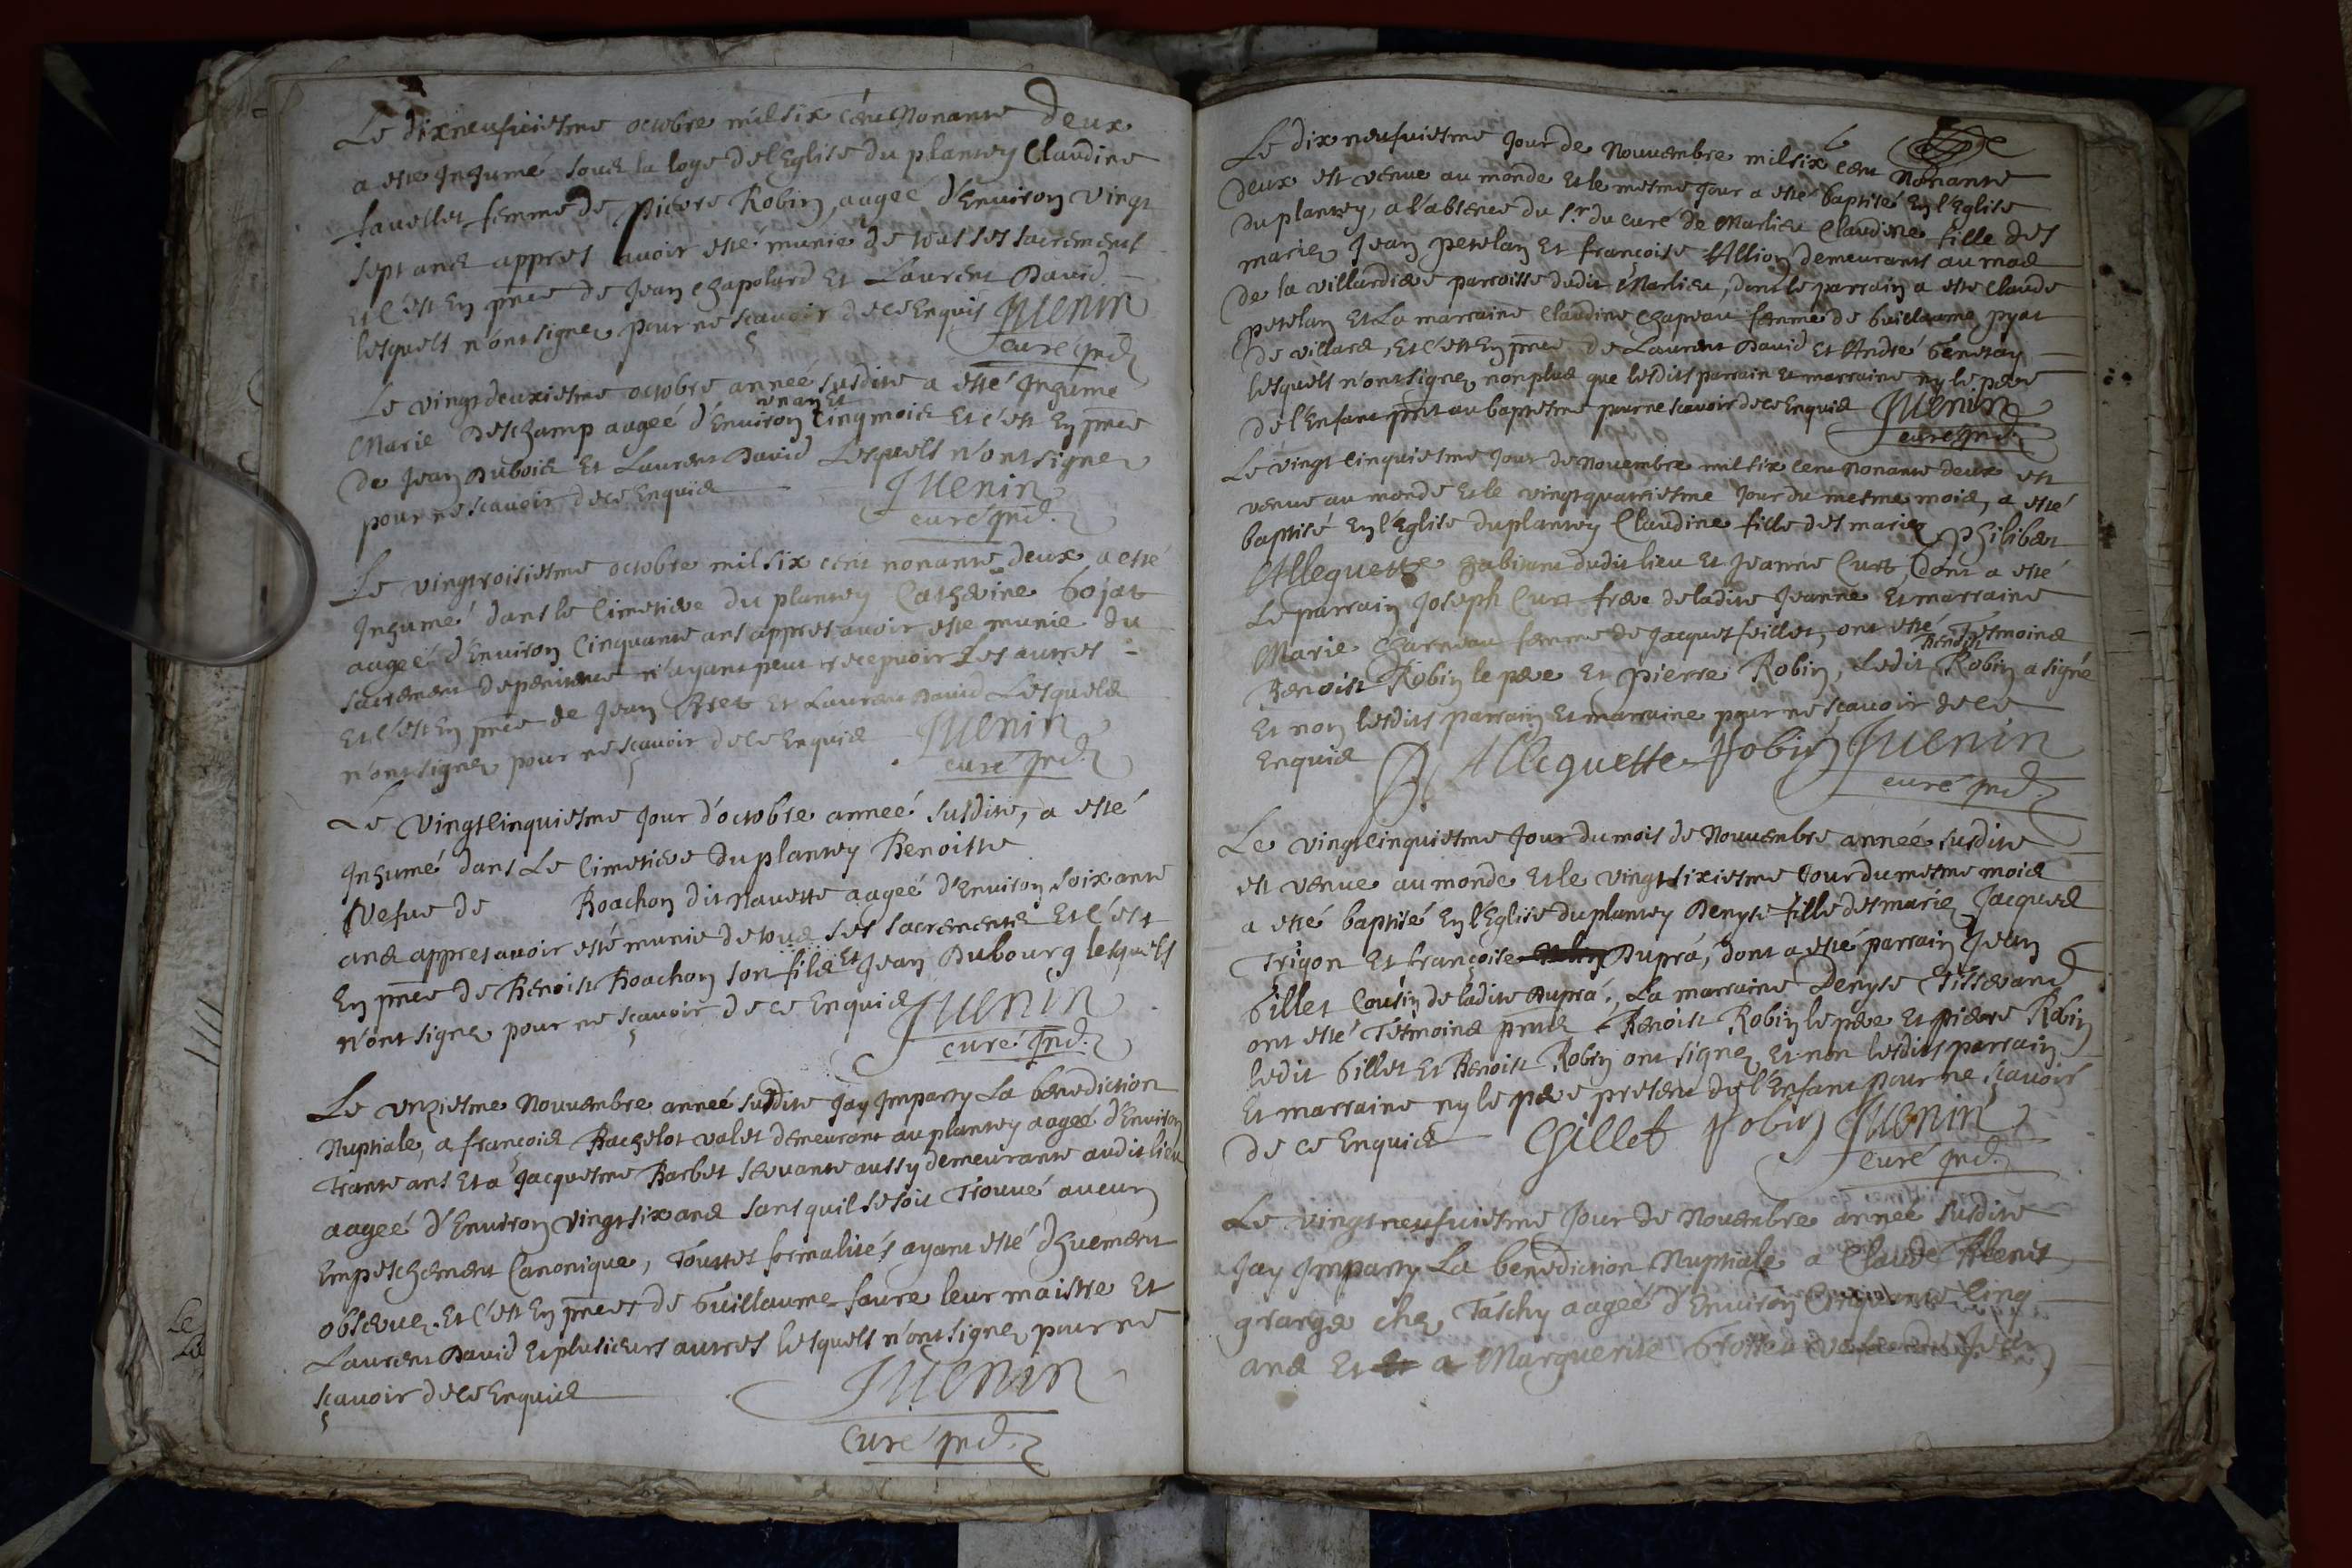 Le dixneufuiesme octobre mil six cent Nonante Deux
a este Inhumé soub la loge de l'Eglise du plantey Claudine
fauellet femme de Pierre Robin, aagée d'Enuiron vingt
sept ans appres auoir esté munie de tous ses sacrements
Et c'est En pnce de Jean Chapolard Et Laurent Dauid
lesquels n'ont signez pour ne scauoir de ce Enquis JUenin
curé Ind.
Le vingtdeuxiesme octobre année susdite a esté Inhumé
un an et
Marie Deschamp aagéé d'Enuiron Cinq mois Et c'est En pnce
De Jean Dubois Et Laurent Dauid Lesquels n'ont signez
pour ne scauoir de ce Enquis JUenin
curé Ind.
Le vingtroisiesme octobre mil six cent nonante deux a esté
Inhumé dans le Cimetiere du plantey Catherine Gojat
aagéé d'Enuiron Cinquante ans appres auoir esté munie du
sacrement de penitence n'ayant peut recepuoir Les autres
Et c'est En pnce de Jean Bret Et Laurent Dauid Lesquels
n'ont signez pour ne scauoir de ce Enquis JUenin
curé Ind.
Le Vingtcinquiesme Jour d'octobre anneé susdite, a esté
Inhumé dans Le Cimetiere du plantey Benoitte
Vefue de Boachon dit Nauette aagéé d'Enuiron soixante
ans appres auoir esté munie de tous ses sacrements Et c'est
En pnce de Benoist Boachon son fils Et Jean Dubourg lesquels
n'ont signez pour ne scauoir de ce Enquis JUenin
curé Ind.
Le vnziesme Nouuembre anneé susdite Jay Imparty La benediction
Nuptiale, a françois Bachelot valet demeurant au plantey aagéé d'Enuiron
trante ans Et a Jacquesme Barbet seruante aussy demeurante audit lieu
aagéé d'Enuiron vingt six ans sans quil se soit Trouué aucun
Empeschement Canonique, Touttes formalités ayant esté dhuement
obseruez. Et c'est En pnces de Guillaume faure leur maistre Et
Laurent Dauid Et plusieurs autres lesquels n'ont signez pour ne
scauoir de ce Enquis JUenin
Curé Ind.
Le dix neufuiesme Jour de Nouuembre mil six cent Nonante
Deux est venue au monde Et le mesme Jour a esté baptisé En l'Eglise
du plantey, a l'absence du Sr. du curé de Marlieu Claudine fille des
mariez Jean petelan Et françoise Allion demeurants au mas
De la villardiere parroisse dudit Marlieu, dont le parrain a esté Claude
petelan Et La marraine Claudine Chapeau femme de Guillaume pyat
De villars, Et c'est En pnce de Laurent Dauid Et André Genetay
lesquels n'ont signez non plus que lesdits parrain Et marraine ny le pere
de l'Enfant pnt au baptesme pour ne scauoir de ce Enquis JUenin
curé Ind.
Le vingt Cinquiesme Jour de Nouembre mil six cent Nonante deux est
venue au monde Et le vingtquatriesme Jour du mesme mois, a esté
baptisé En l'Eglise du plantey Claudine fille des mariez Philibert
Allequette habitant dudit lieu Et Jeanne Curt, Dont a esté
Le parrain Joseph Curt frere de ladite Jeanne Et marraine
Marie Charneau femme de Jacques feillet, ont esté Tesmoins
Benoist
Benoist Robin le pere Et pierre Robin, Ledit Robin a signé
Et non lesdits parrain Et marraine pour ne scauoir de ce
Enquis P. Allequette Robin JUenin
curé Ind.
Le vingtcinquiesme Jour du mois de Nouuembre année susdite
est venue au monde Et le vingtsixiesme Jour du mesme mois
a esté baptisé En l'Eglise du plantey Denyse fille des mariez Jacques
Trigon Et françoise Dupra, dont a esté parrain Jean
Gillet Cousin de ladite Dupra, La marraine Denyse Tisserand
ont esté Tesmoins pnts Benoist Robin le pere Et pierre Robin
ledit Gillet Et Benoist Robin ont signez Et non lesdits parrain
Et marraine ny le pere present de l'Enfant pour ne scauoir
De ce Enquis Gillet Robin JUenin
Curé Ind.
Le vingtneufuiesme Jour de Nouembre année susdite
Jay Imparty La benediction Nuptiale a Claude
grange chez Taschy aagéé d'Enuiron Cinquante Cinq
ans Et a Marguerite vefue de Jean